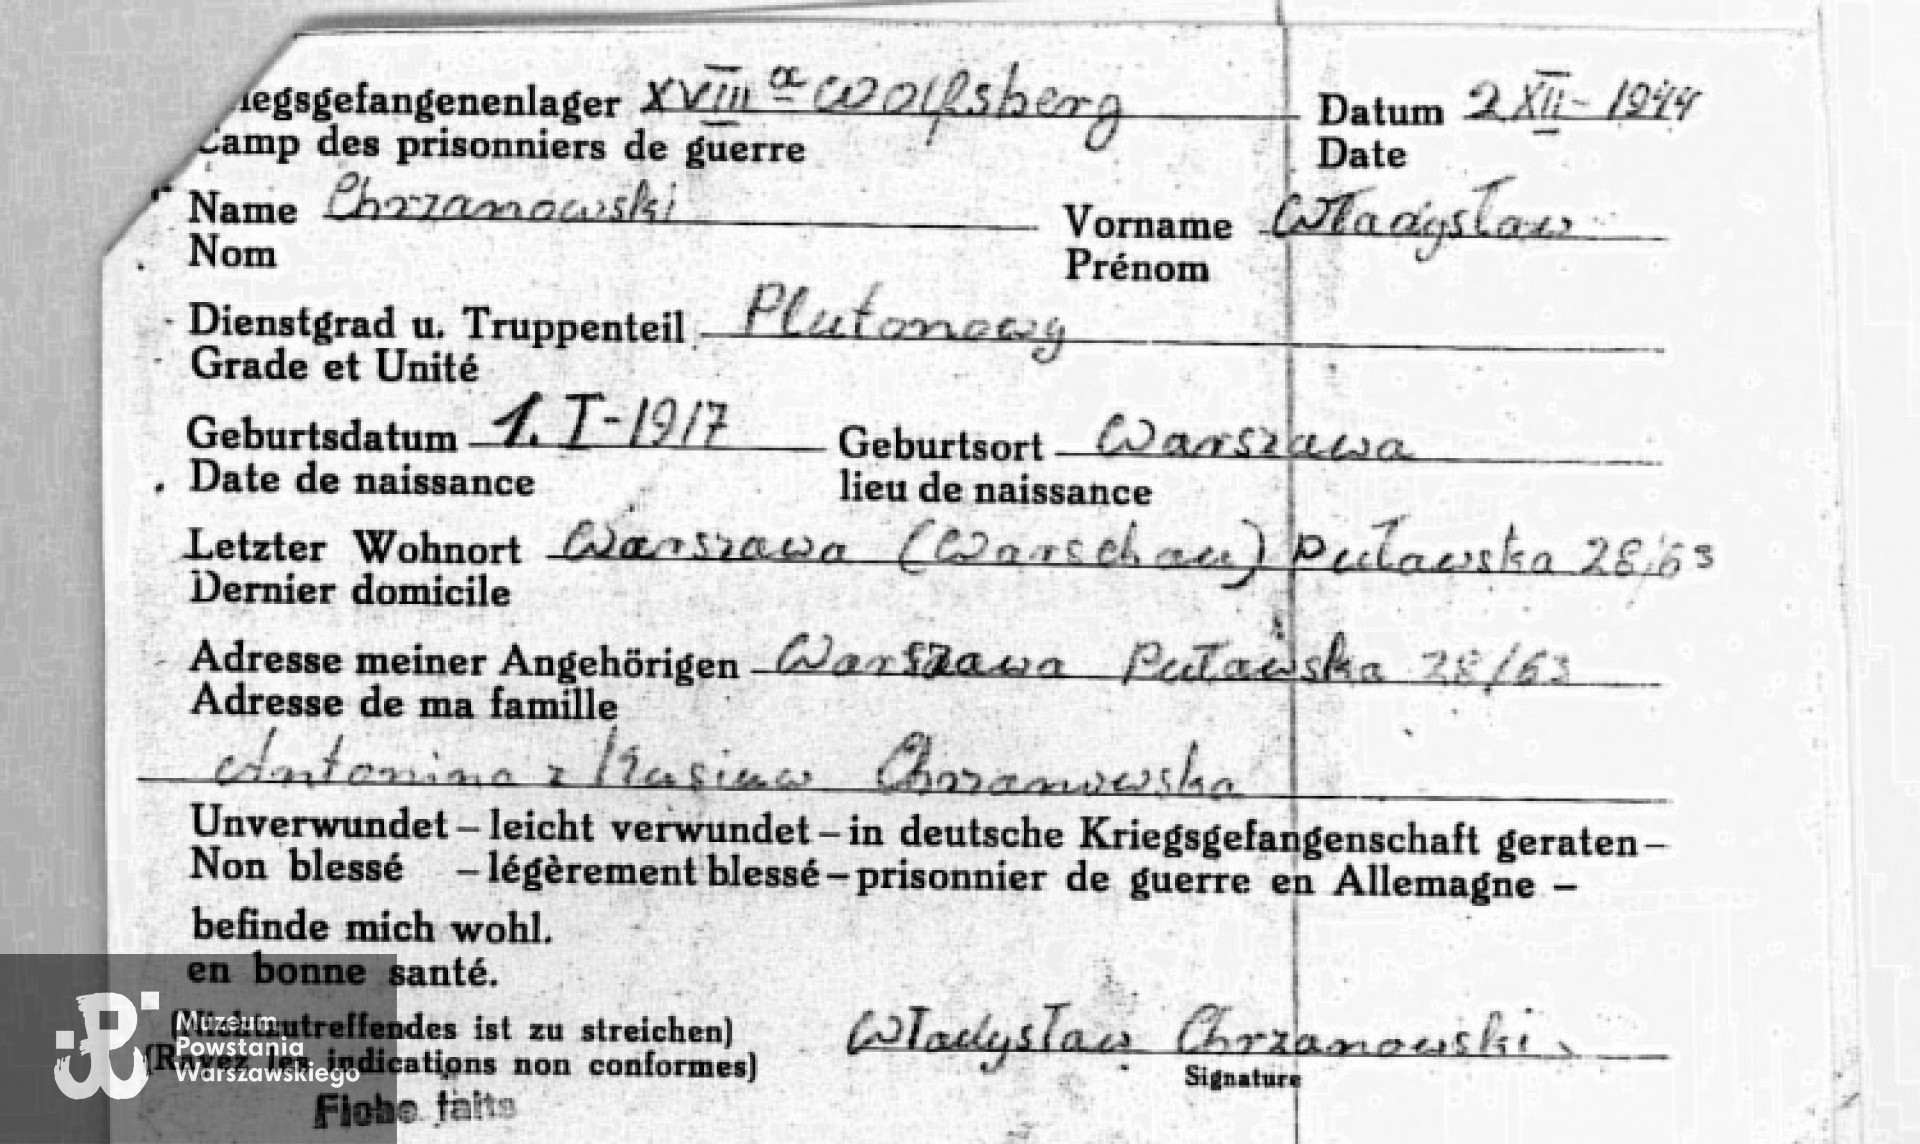 iegsgefangenenlager XVIII a Wolfsberg Datum 2 XII - 1944
Camp des prisonniers de guerre Date
Name Chrzanowski Vorname Władysław
Nom Prénom
Dienstgrad u. Truppenteil Plutonowy
Grade et Unité
Geburtsdatum 1. I - 1917 Geburtsort Warszawa
Date de naissance lieu de naissance
Letzter Wohnort Warszawa (Warschau) Puławska 28/63
Dernier domicile
Adresse meiner Angehörigen Warszawa Puławska 28/63
Adresse de ma famille
Antonina z Chrzanowska
Unverwundet – leicht verwundet – in deutsche Kriegsgefangenschaft geraten –
Non blessé – légèrement blessé – prisonnier de guerre en Allemagne –
befinde mich wohl.
en bonne santé.
(Nichtzutreffendes ist zu streichen)
(Rayez les indications non conformes)
Władysław Chrzanowski
Signature
Fiche faite
Muzeum
Powstania
Warszawskiego